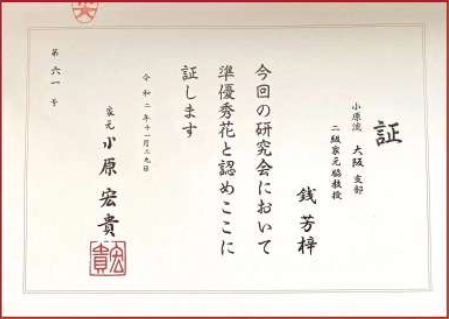 証
小原流 大阪支部
二級家元脇教授
銭芳梓
今回の研究会において
準優秀花と認めここに
証します
令和二年十一月二九日
家元 小原宏貴
宏貴
第六一号